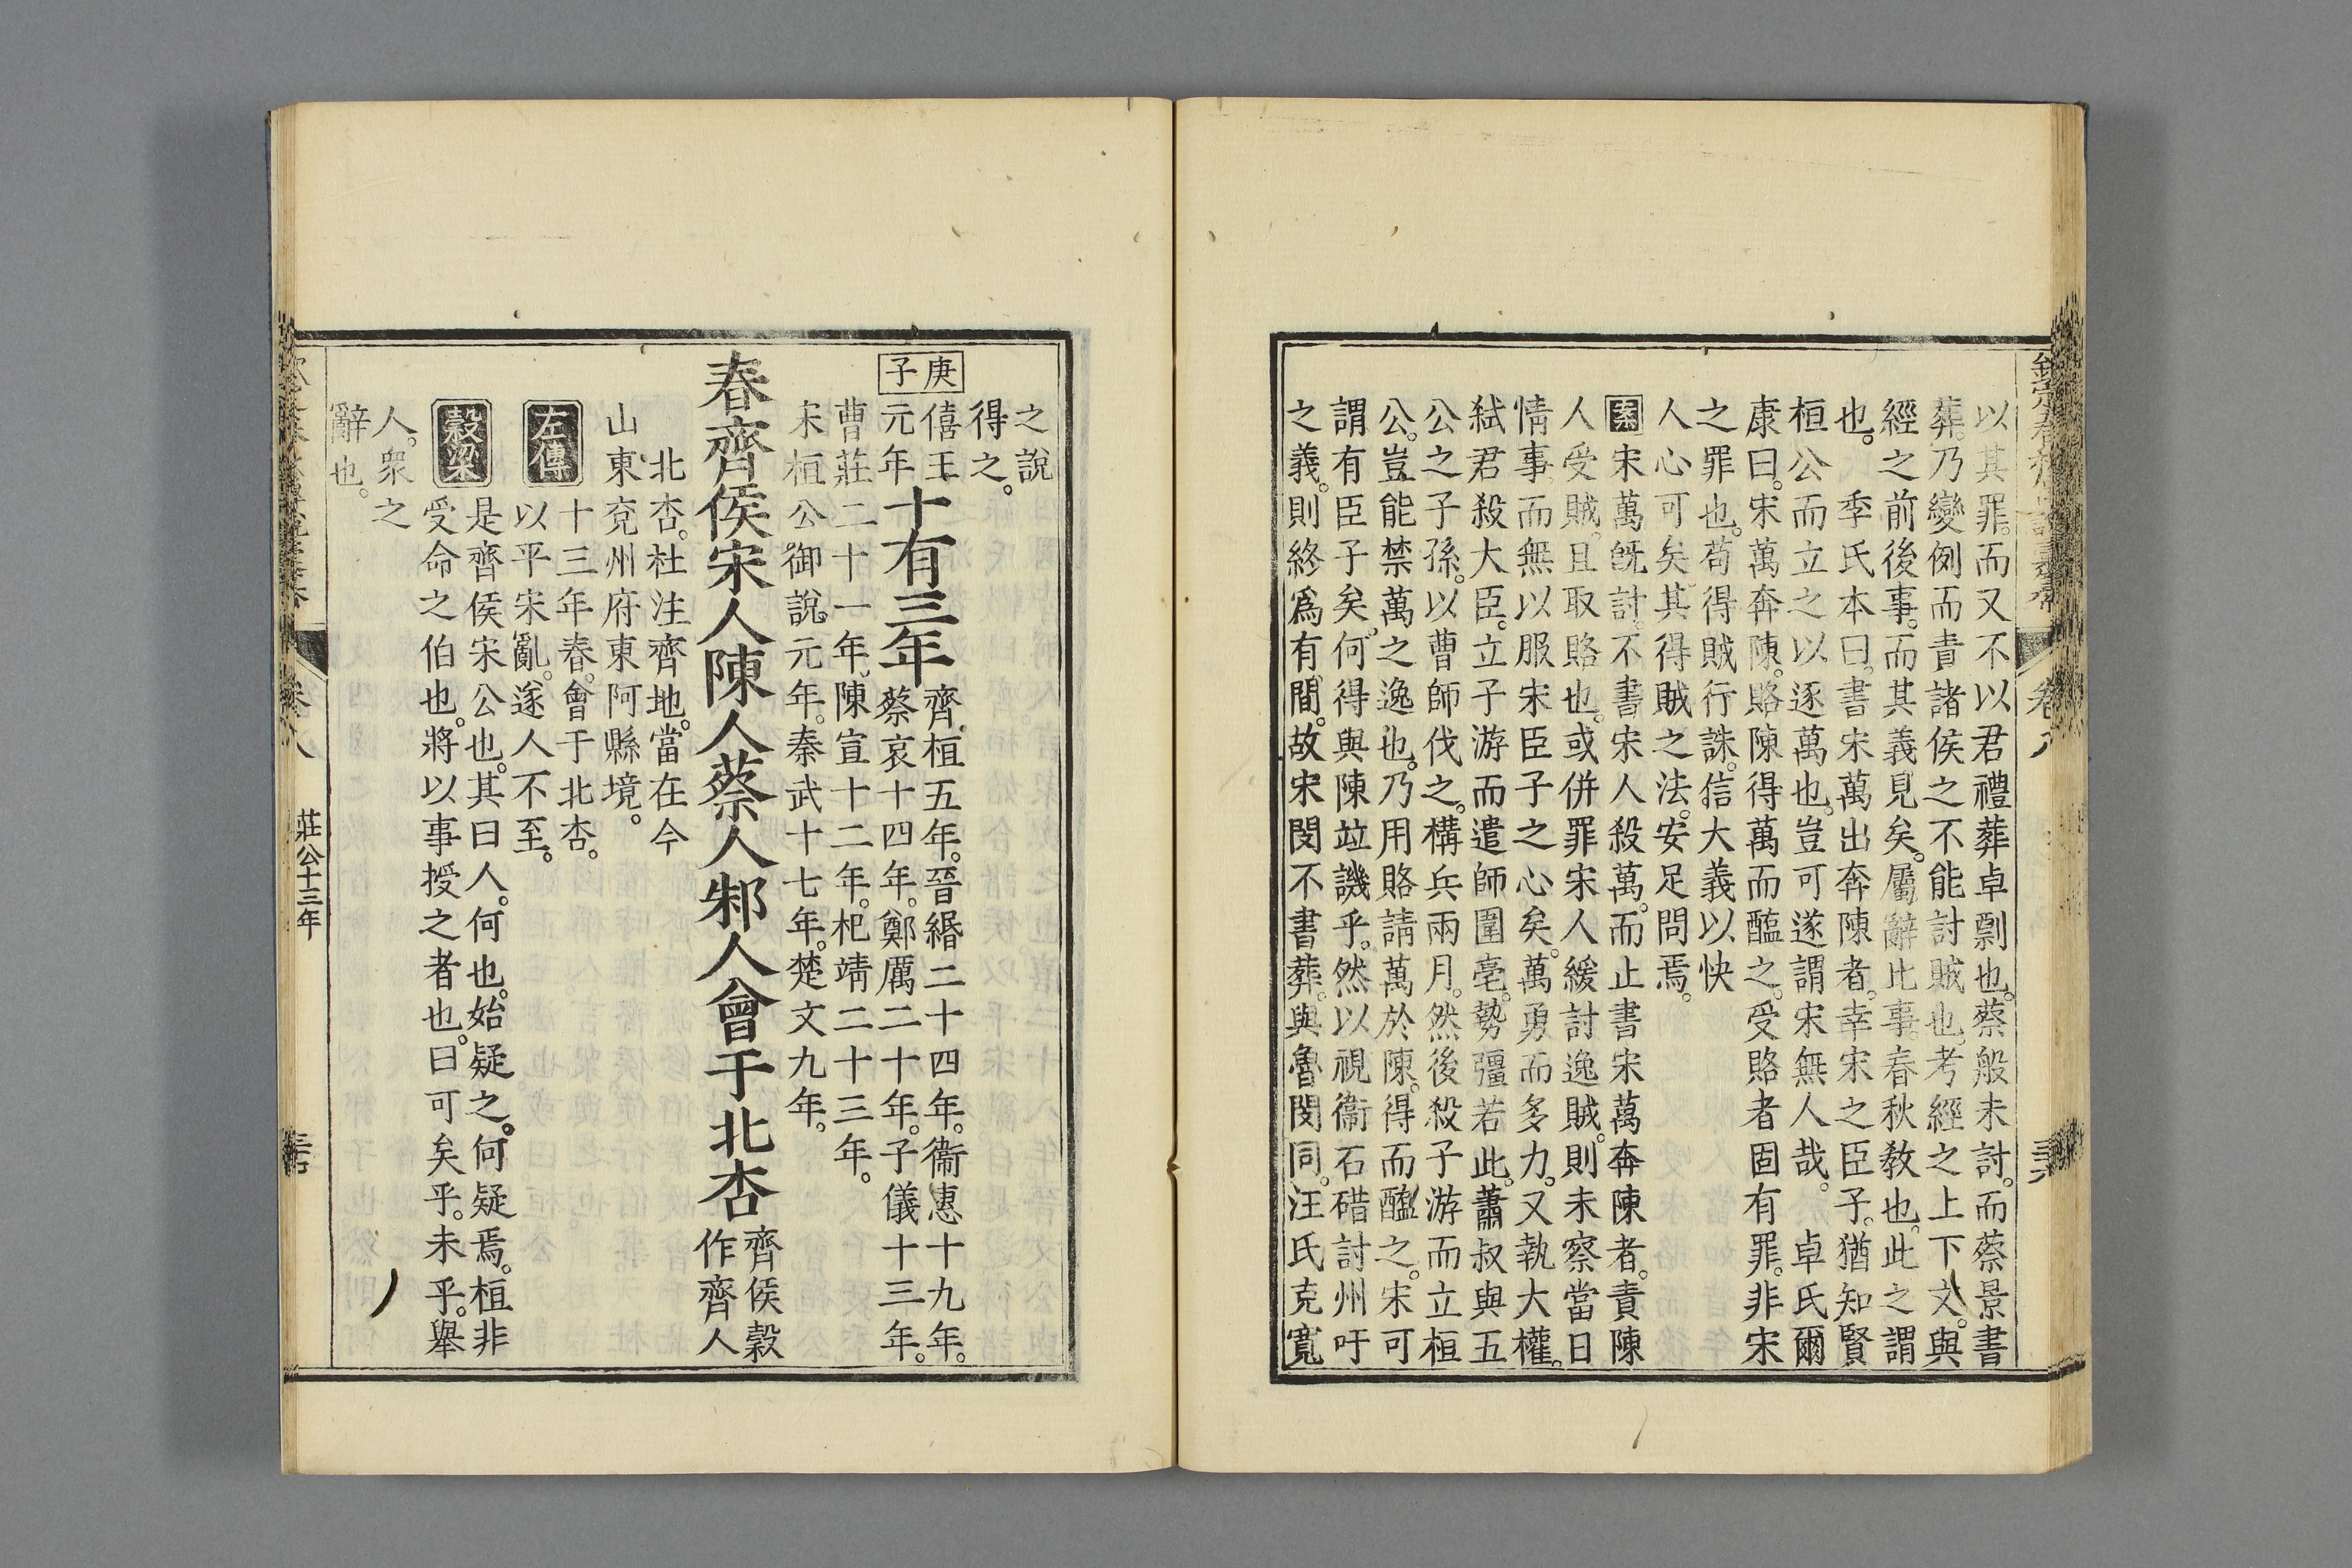 以其罪。而又不以君禮葬卓剽也。蔡般未討。而蔡景書
葬。乃變例而責諸侯之不能討賊也。考經之上下文。與
經之前後事。而其義見矣。屬辭比事。春秋敎也。此之謂
也。　季氏本曰。書宋萬出奔陳者。幸宋之臣子。猶知賢
桓公而立之以逐萬也。豈可遂謂宋無人哉。　卓氏爾
康曰。宋萬奔陳。賂陳得萬而醢之。受賂者固有罪。非宋
之罪也。苟得賊行誅。信大義以快
人心可矣。其得賊之法。安足問焉。
案 宋萬旣討。不書宋人殺萬。而止書宋萬奔陳者。責陳
人受賊。且取賂也。或併罪宋人緩討逸賊。則未察當日
情事。而無以服宋臣子之心矣。萬勇而多力。又執大權。
弒君殺大臣。立子游而遣師圍亳。勢彊若此。蕭叔與五
公之子孫。以曹師伐之。構兵兩月。然後殺子游而立桓
公。豈能禁萬之逸也。乃用賂請萬於陳。得而醢之。宋可
謂有臣子矣。何得與陳竝譏乎。然以視衞石碏討州吁
之義。則終爲有間。故宋閔不書葬。與魯閔同。汪氏克寬
之說
得之。
庚子
僖王
元年
十有三年
齊桓五年。晉緡二十四年。衞惠十九年。
蔡哀十四年。鄭厲二十年。子儀十三年。
曹莊二十一年。陳宣十二年。杞靖二十三年。
宋桓公御說。元年。秦武十七年。楚文九年。
春齊侯宋人陳人蔡人邾人會于北杏
齊侯穀
作齊人
北杏。杜注齊地。當在今
山東兗州府東阿縣境。
左傳
十三年春。會于北杏。
以平宋亂。遂人不至。
穀梁
是齊侯宋公也。其曰人。何也。始疑之。何疑焉。桓非
受命之伯也。將以事授之者也。曰可矣乎。未乎。舉
人。衆之
辭也。
卷八
莊公十三年